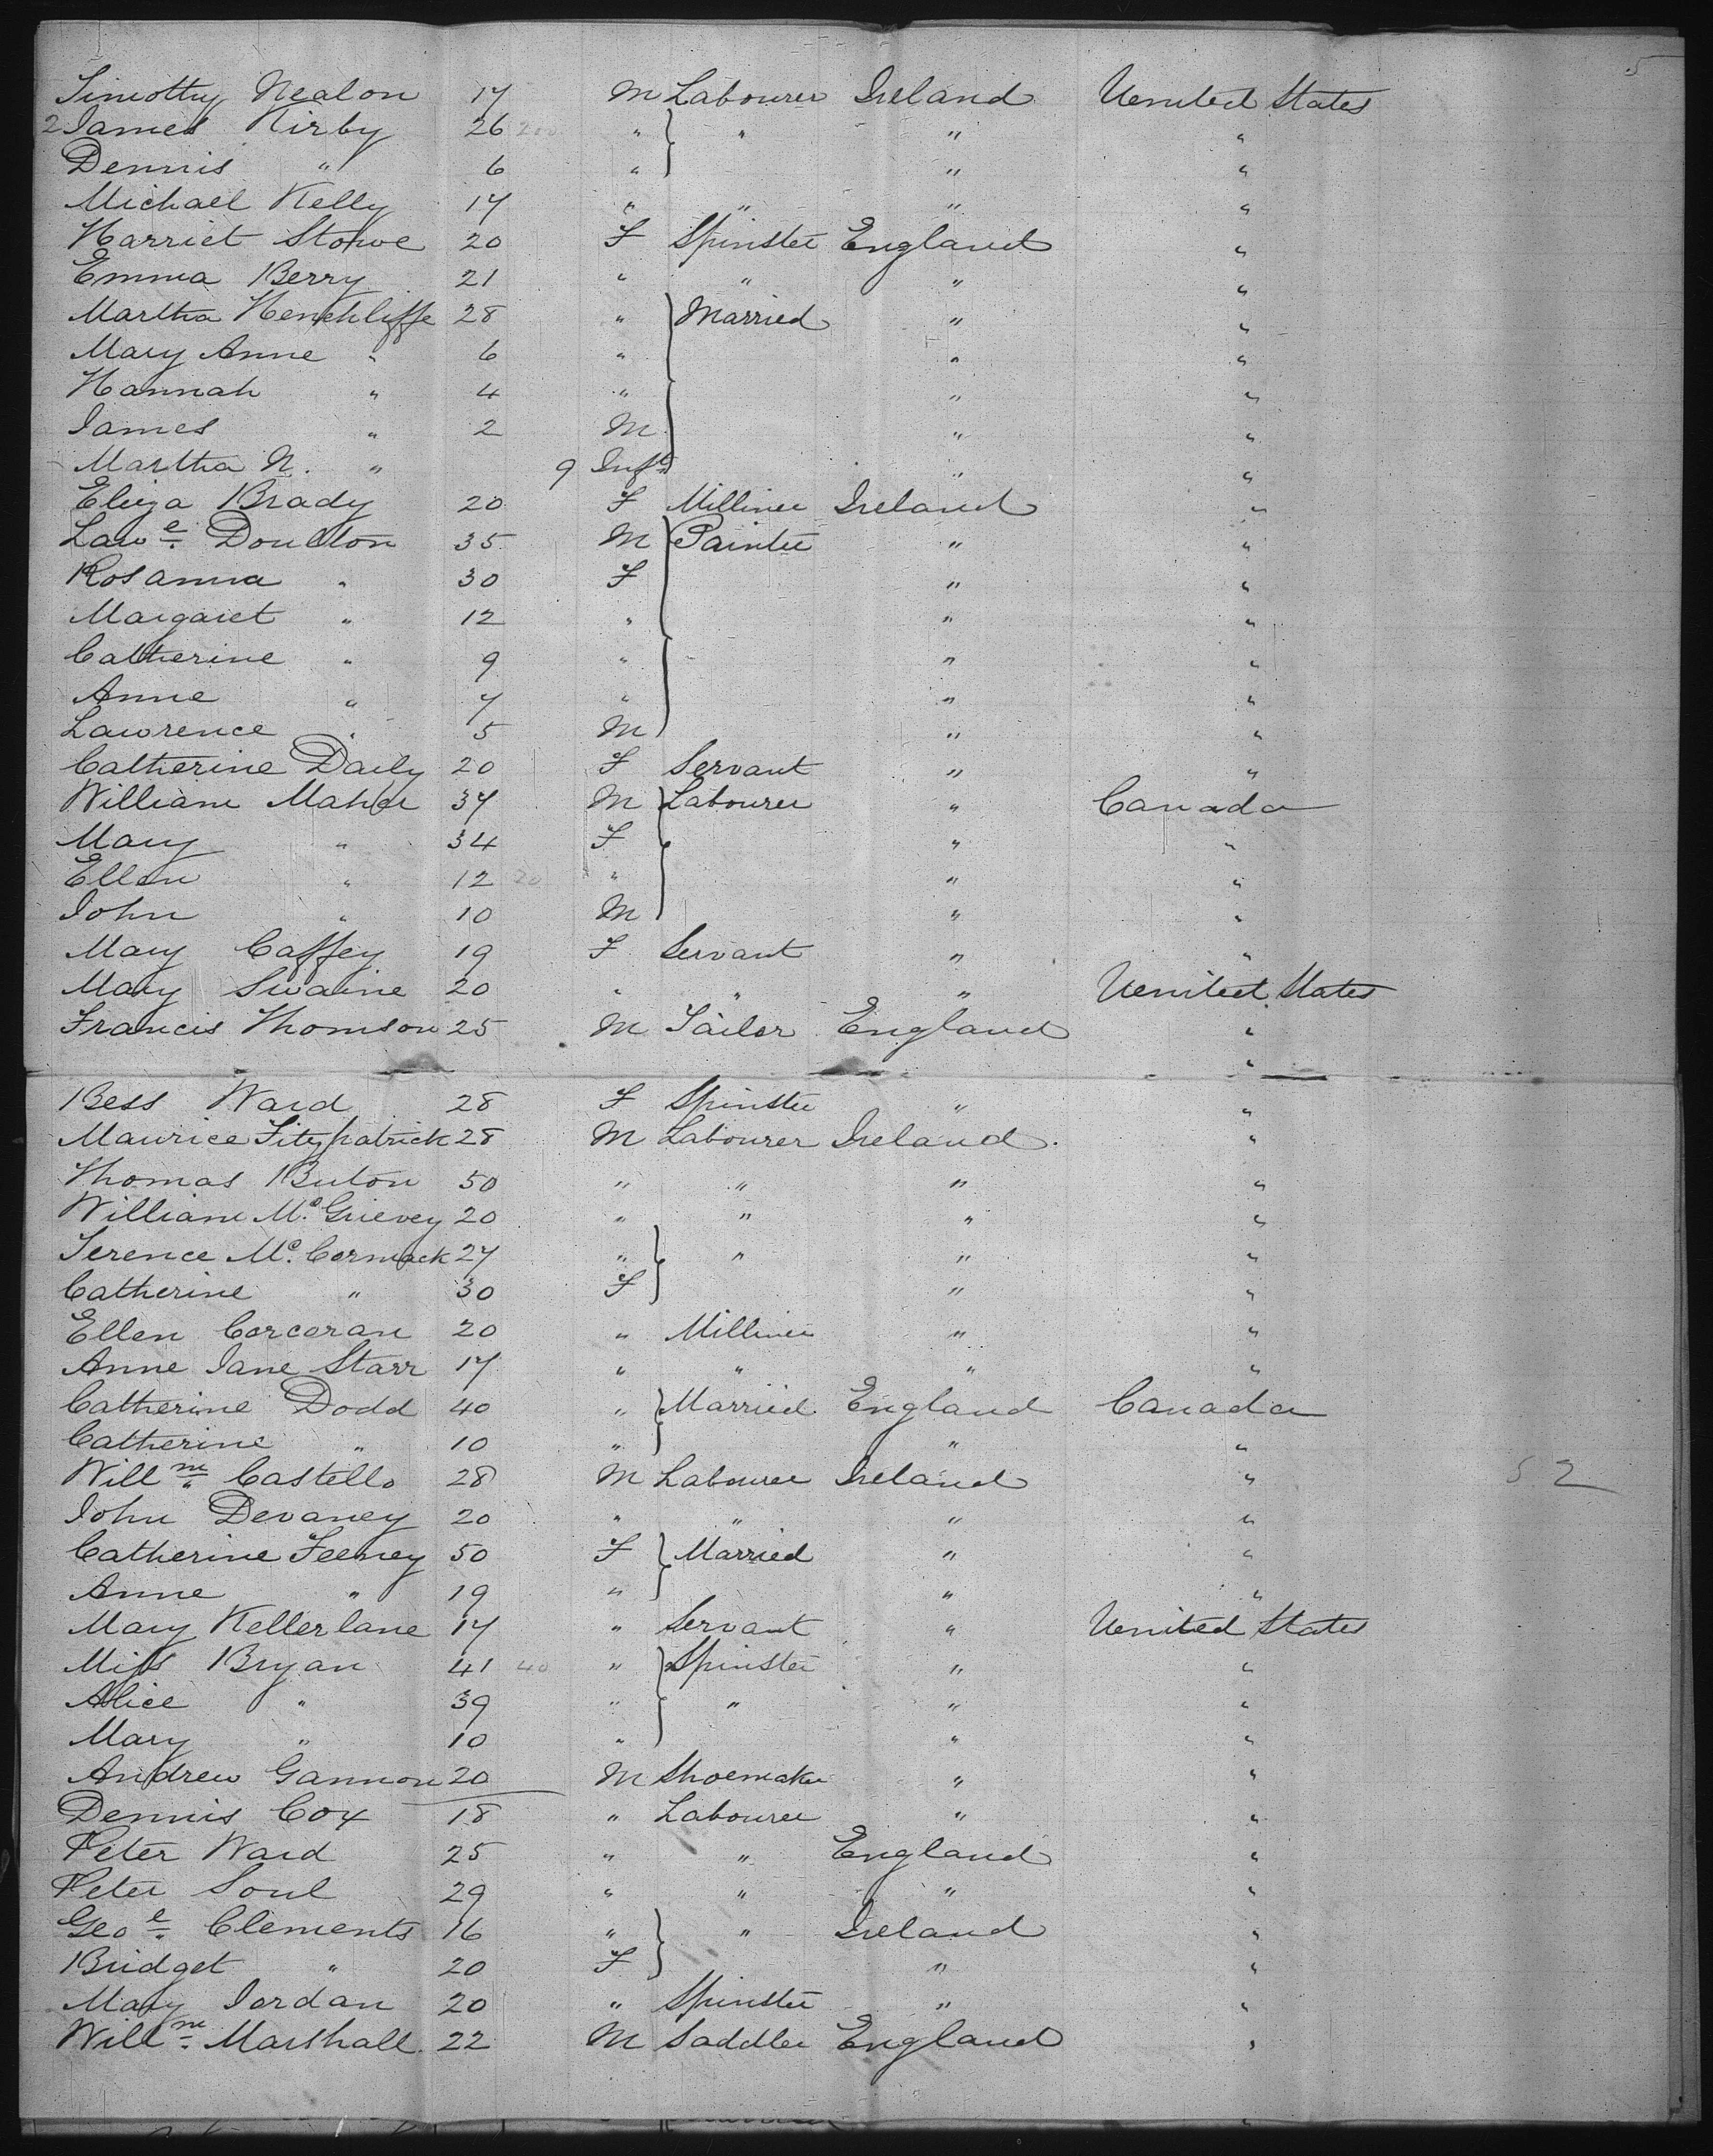 5
Timothy Nealon 17 M Labourer Ireland United States
2 James Kirby 26 200 " " " "
Dennis " 6 " " "
Michael Kelly 17 " " " "
Harriet Stowe 20 F Spinster England "
Emma Berry 21 " " " "
Martha Henchliffe 28 " Married " "
Mary Anne " 6 " " "
Hannah " 4 " " "
James " 2 M " "
Martha N. " 9 Inft " "
Eliza Brady 20 F Milliner Ireland "
Lawe. Doulton 35 M Painter " "
Rosanna " 30 F " "
Margaret " 12 " " "
Catherine " 9 " " "
Anne " 7 " " "
Lawrence " 5 M " "
Catherine Daily 20 F Servant " "
William Maher 37 M Labourer " Canada
Mary " 34 F " "
Ellen " 12 20 " " "
John " 10 M " "
Mary Caffey 19 F Servant " "
Mary Swaine 20 " " " United States
Francis Thomson 25 M Tailor England "
"
Bess Ward 28 F Spinster " "
Maurice Fitzpatrick 28 M Labourer Ireland. "
Thomas Buton 50 " " " "
William Mc. Grievey 20 " " " "
Terence Mc. Cormack 27 " " " "
Catherine " 30 F " "
Ellen Corcoran 20 " Milliner " "
Anne Jane Starr 17 " " " "
Catherine Dodd 40 " Married England Canada
Catherine " 10 " " "
Willm. Castello 28 M Labourer Ireland " 52
John Devaney 20 " " " "
Catherine Feeney 50 F Married " "
Anne " 19 " " "
Mary Kellerlane 17 " Servant " United States
Miss Bryan 41 40 " Spinster " "
Alice " 39 " " " "
Mary " 10 " " "
Andrew Gannon 20 M Shoemaker " "
Dennis Cox 18 " Labourer " "
Peter Ward 25 " " England "
Peter Soul 29 " " " "
Geoe. Clements 16 " " Ireland "
Bridget " 20 F " "
Mary Jordan 20 " Spinster " "
Willm. Marshall 22 M Saddler England "